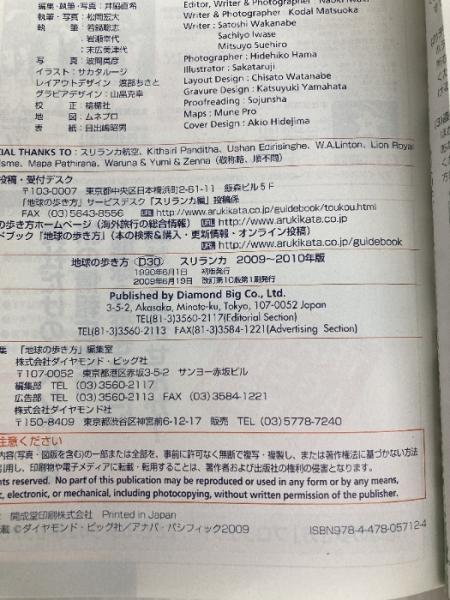 編集・執筆・写真：井脇直希
Editor, Writer & Photographer : Naoki Iwaki
執筆・写真：松岡宏大
Writer & Photographer Kodai Matsuoka
執　筆：若鍋聡志
Writer : Satoshi Wakanabe
：岩瀬幸代
Sachiyo Iwase
：末広美津代
Mitsuyo Suehiro
写　真：波間英彦
Photographer : Hidehiko Hama
イラスト：サカタルージ
Illustrator : Sakataruji
レイアウトデザイン 渡部ちさと
Layout Design : Chisato Watanabe
グラビアデザイン：山畠克幸
Gravure Design : Katsuyuki Yamahata
校　正：槍楯社
Proofreading : Sojunsha
地　図：ムネプロ
Maps : Mune Pro
表　紙：日出嶋昭男
Cover Design : Akio Hidejima
CIAL THANKS TO : スリランカ航空, Kithsiri Panditha, Ushan Edirisinghe, W.A.Linton, Lion Royal
isme, Mapa Pathirana, Waruna & Yumi & Zenna (敬称略、順不同)
投稿・受付デスク
〒103-0007　東京都中央区日本橋浜町2-61-11　飯森ビル5F
「地球の歩き方」サービスデスク「スリランカ編」投稿係
FAX (03)5643-8556　URL http://www.arukikata.co.jp/guidebook/toukou.html
の歩き方ホームページ（海外旅行の総合情報） URL http://www.arukikata.co.jp
ドブック「地球の歩き方」（本の検索＆購入・更新情報・オンライン投稿）
URL http://www.arukikata.co.jp/guidebook
地球の歩き方 D30 スリランカ 2009～2010年版
1990年6月1日　初版発行
2009年6月19日　改訂第10版第1刷発行
Published by Diamond Big Co., Ltd.
3-5-2, Akasaka, Minato-ku, Tokyo, 107-0052 Japan
TEL(81-3)3560-2117(Editorial Section)
TEL(81-3)3560-2113 FAX(81-3)3584-1221(Advertising Section)
集　「地球の歩き方」編集室
株式会社ダイヤモンド・ビッグ社
〒107-0052　東京都港区赤坂3-5-2　サンヨー赤坂ビル
編集部　TEL (03)3560-2117
広告部　TEL (03)3560-2113　FAX (03)3584-1221
株式会社ダイヤモンド社
〒150-8409　東京都渋谷区神宮前6-12-17　販売　TEL (03)5778-7240
注意ください
内容(写真・図版を含む)の一部または全部を、事前に許可なく無断で複写・複製し、または著作権法に基づかない方法
引用し、印刷物や電子メディアに転載・転用することは、著作者および出版社の権利の侵害となります。
hts reserved. No part of this publication may be reproduced or used in any form or by any means,
c, electronic, or mechanical, including photocopying, without written permission of the publisher.
開成堂印刷株式会社　Printed in Japan
載 ©ダイヤモンド・ビッグ社／アナパ・パシフィック2009
ISBN978-4-478-05712-4